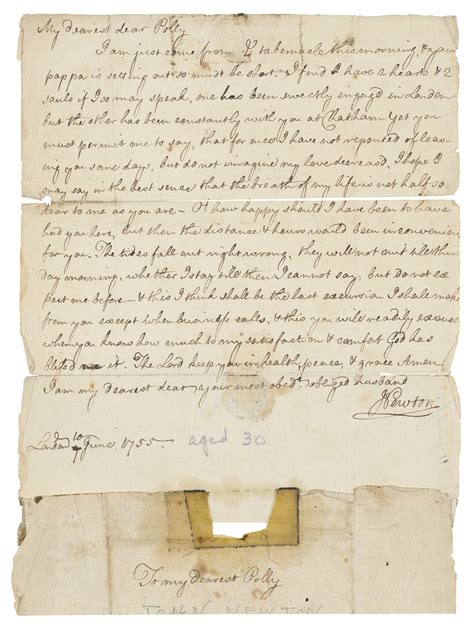 My dearest dear Polly
I am just come from ye tabernacle this morning, & your
pappa is setting out so must be short. I find I have 2 hearts & 2
souls if I so may speak, one has been sweetly engag'd in London
but the other has been constantly with you at Chatham. Yet you
must permit me to say, that for me I have not repented of leav-
ing you some days, but do not imagine my love decreas'd, I hope I
may say in the best sense that the breath of my life is not half so
dear to me as you are - Oh how happy should I have been to have
had you here, but then the distance & hours would been inconvenient
for you. The tides fall out right wrong, they will not suit till
day morning, whether I stay till then I cannot say; but do not ex
pect me before & this I think shall be the last excursion I shall make
from you except when business calls, & this you will readily excuse
when you know how much to my satisfaction & comfort God has
blessed it. The Lord keep you in health, peace, & grace Amen
I am my dearest dear your most obedt. & obliged husband
JNewton
London 10 June 1755. aged 30
To my dearest Polly
JOHN NEWTON